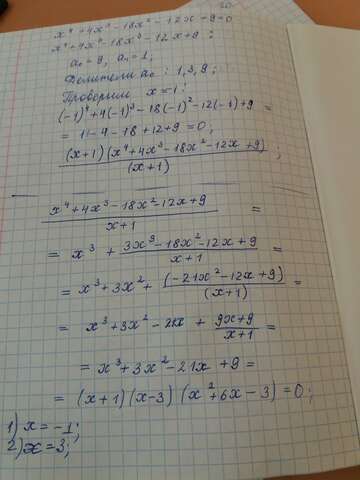 x⁴+4x³-18x²-12x+9=0
x⁴+4x³-18x²-12x+9;
a₀=9, aₙ=1;
Делители a₀: 1,3,9;
Проверим x=-1:
(-1)⁴+4(-1)³-18(-1)²-12(-1)+9=
=1-4-18+12+9=0;
(x+1)(x⁴+4x³-18x²-12x+9)
(x+1) ;
x⁴+4x³-18x²-12x+9
x+1 =
= x³ + (3x³-18x²-12x+9)/(x+1) =
= x³+3x²+ (-21x²-12x+9)/(x+1) =
= x³+3x²-21x + (9x+9)/(x+1) =
= x³+3x²-21x+9=
= (x+1)(x-3)(x²+6x-3)=0;
1) x=-1;
2) x=3;